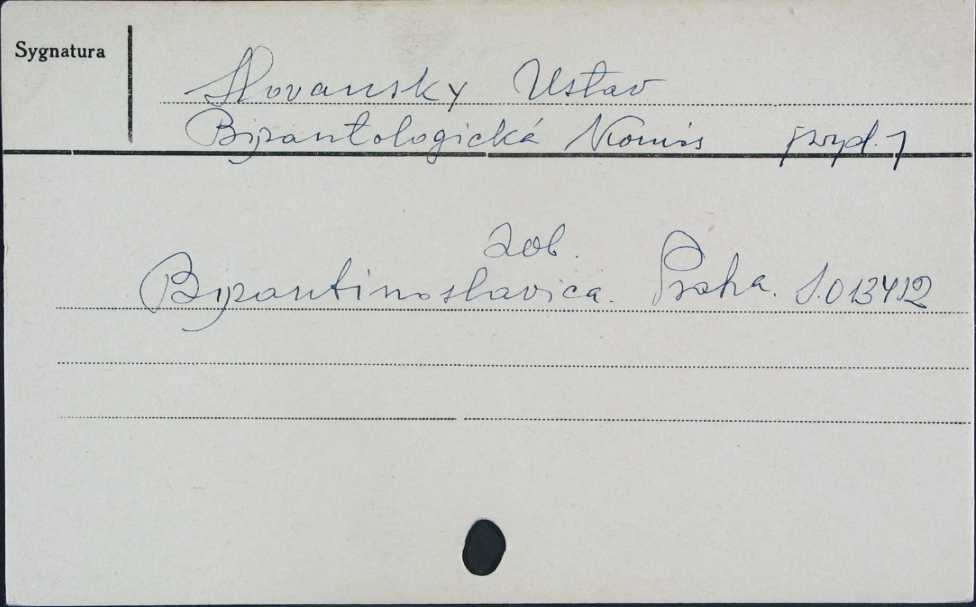 Sygnatura
Slovansky Ustav
Byzantologická Komis [wyd.]
zob.
Byzantinoslavica. Praha. S.013412